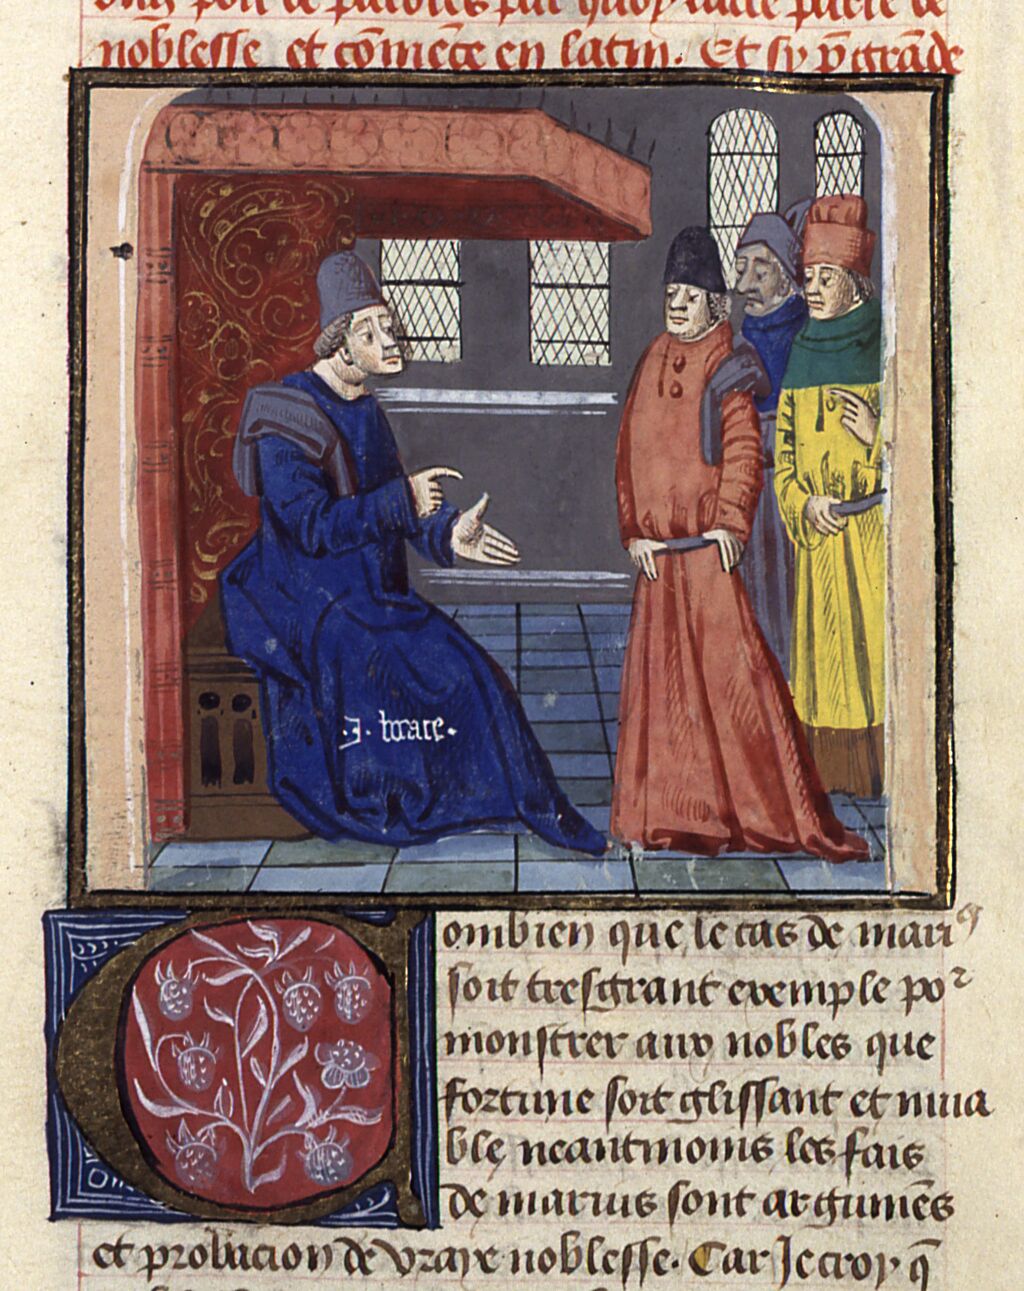 de paroles par quoy parle de
noblesse et cōmēce en latin. Et sy p̄ grāde
.J. bocace.
Combien que le cas de mariꝰ
soit tresgrant exemple poꝛ
monstrer aux nobles que
fortune soit glissant et mua
ble neantmoins les fais
de marius sont argumēs
et probacion de vraye noblesse. Car Je croy q̄